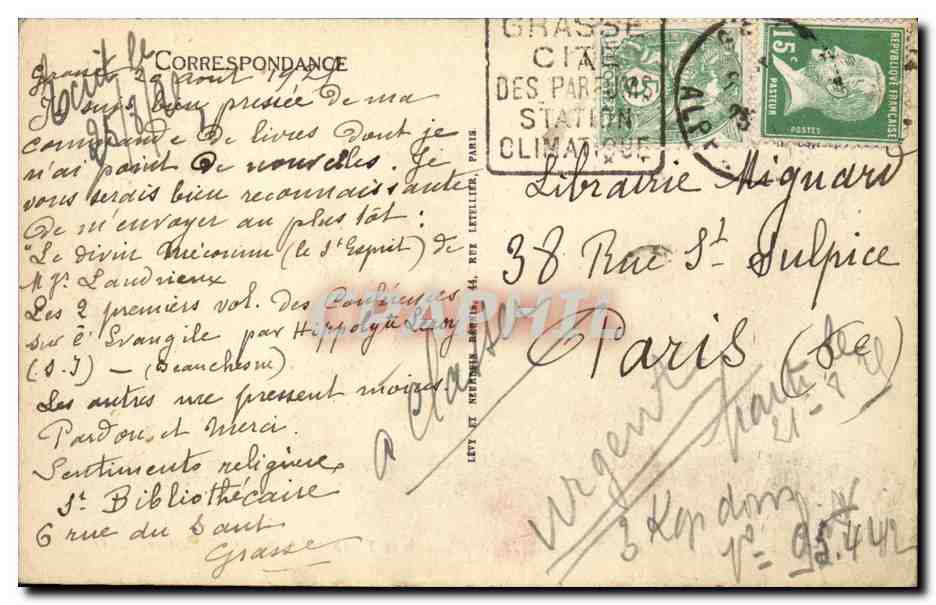 CORRESPONDANCE
Grasse 20 août 192
Écrit le
25/7/20
Je suis bien pressée de ma
commande de livres dont je
n'ai point de nouvelles. Je
vous serais bien reconnaissante
de m'envoyer au plus tôt :
"Le divin Méconnu (le St Esprit) de
Mgr. Landrieux
Les 2 premiers vol. des Conférences
sur l' Évangile par Hippolyte Leroy
(S.J) — (Beauchesne)
Les autres me pressent moins
Pardon et merci.
Sentiments religieux
St Bibliothécaire
6 rue du Saut
Grasse
a classer
LÉVY ET NEURDEIN RÉUNIS, 44, RUE LETELLIER, PARIS.
GRASSE
CITÉ
DES PARFUMS
STATION
CLIMATIQUE
GR
ALP
25
15c
RÉPUBLIQUE FRANÇAISE
PASTEUR
POSTES
Librairie Mignard
38 Rue St Sulpice
Paris (6e)
urgent
parti le
21-8
3 Kgs
95.442
CPAPHIL